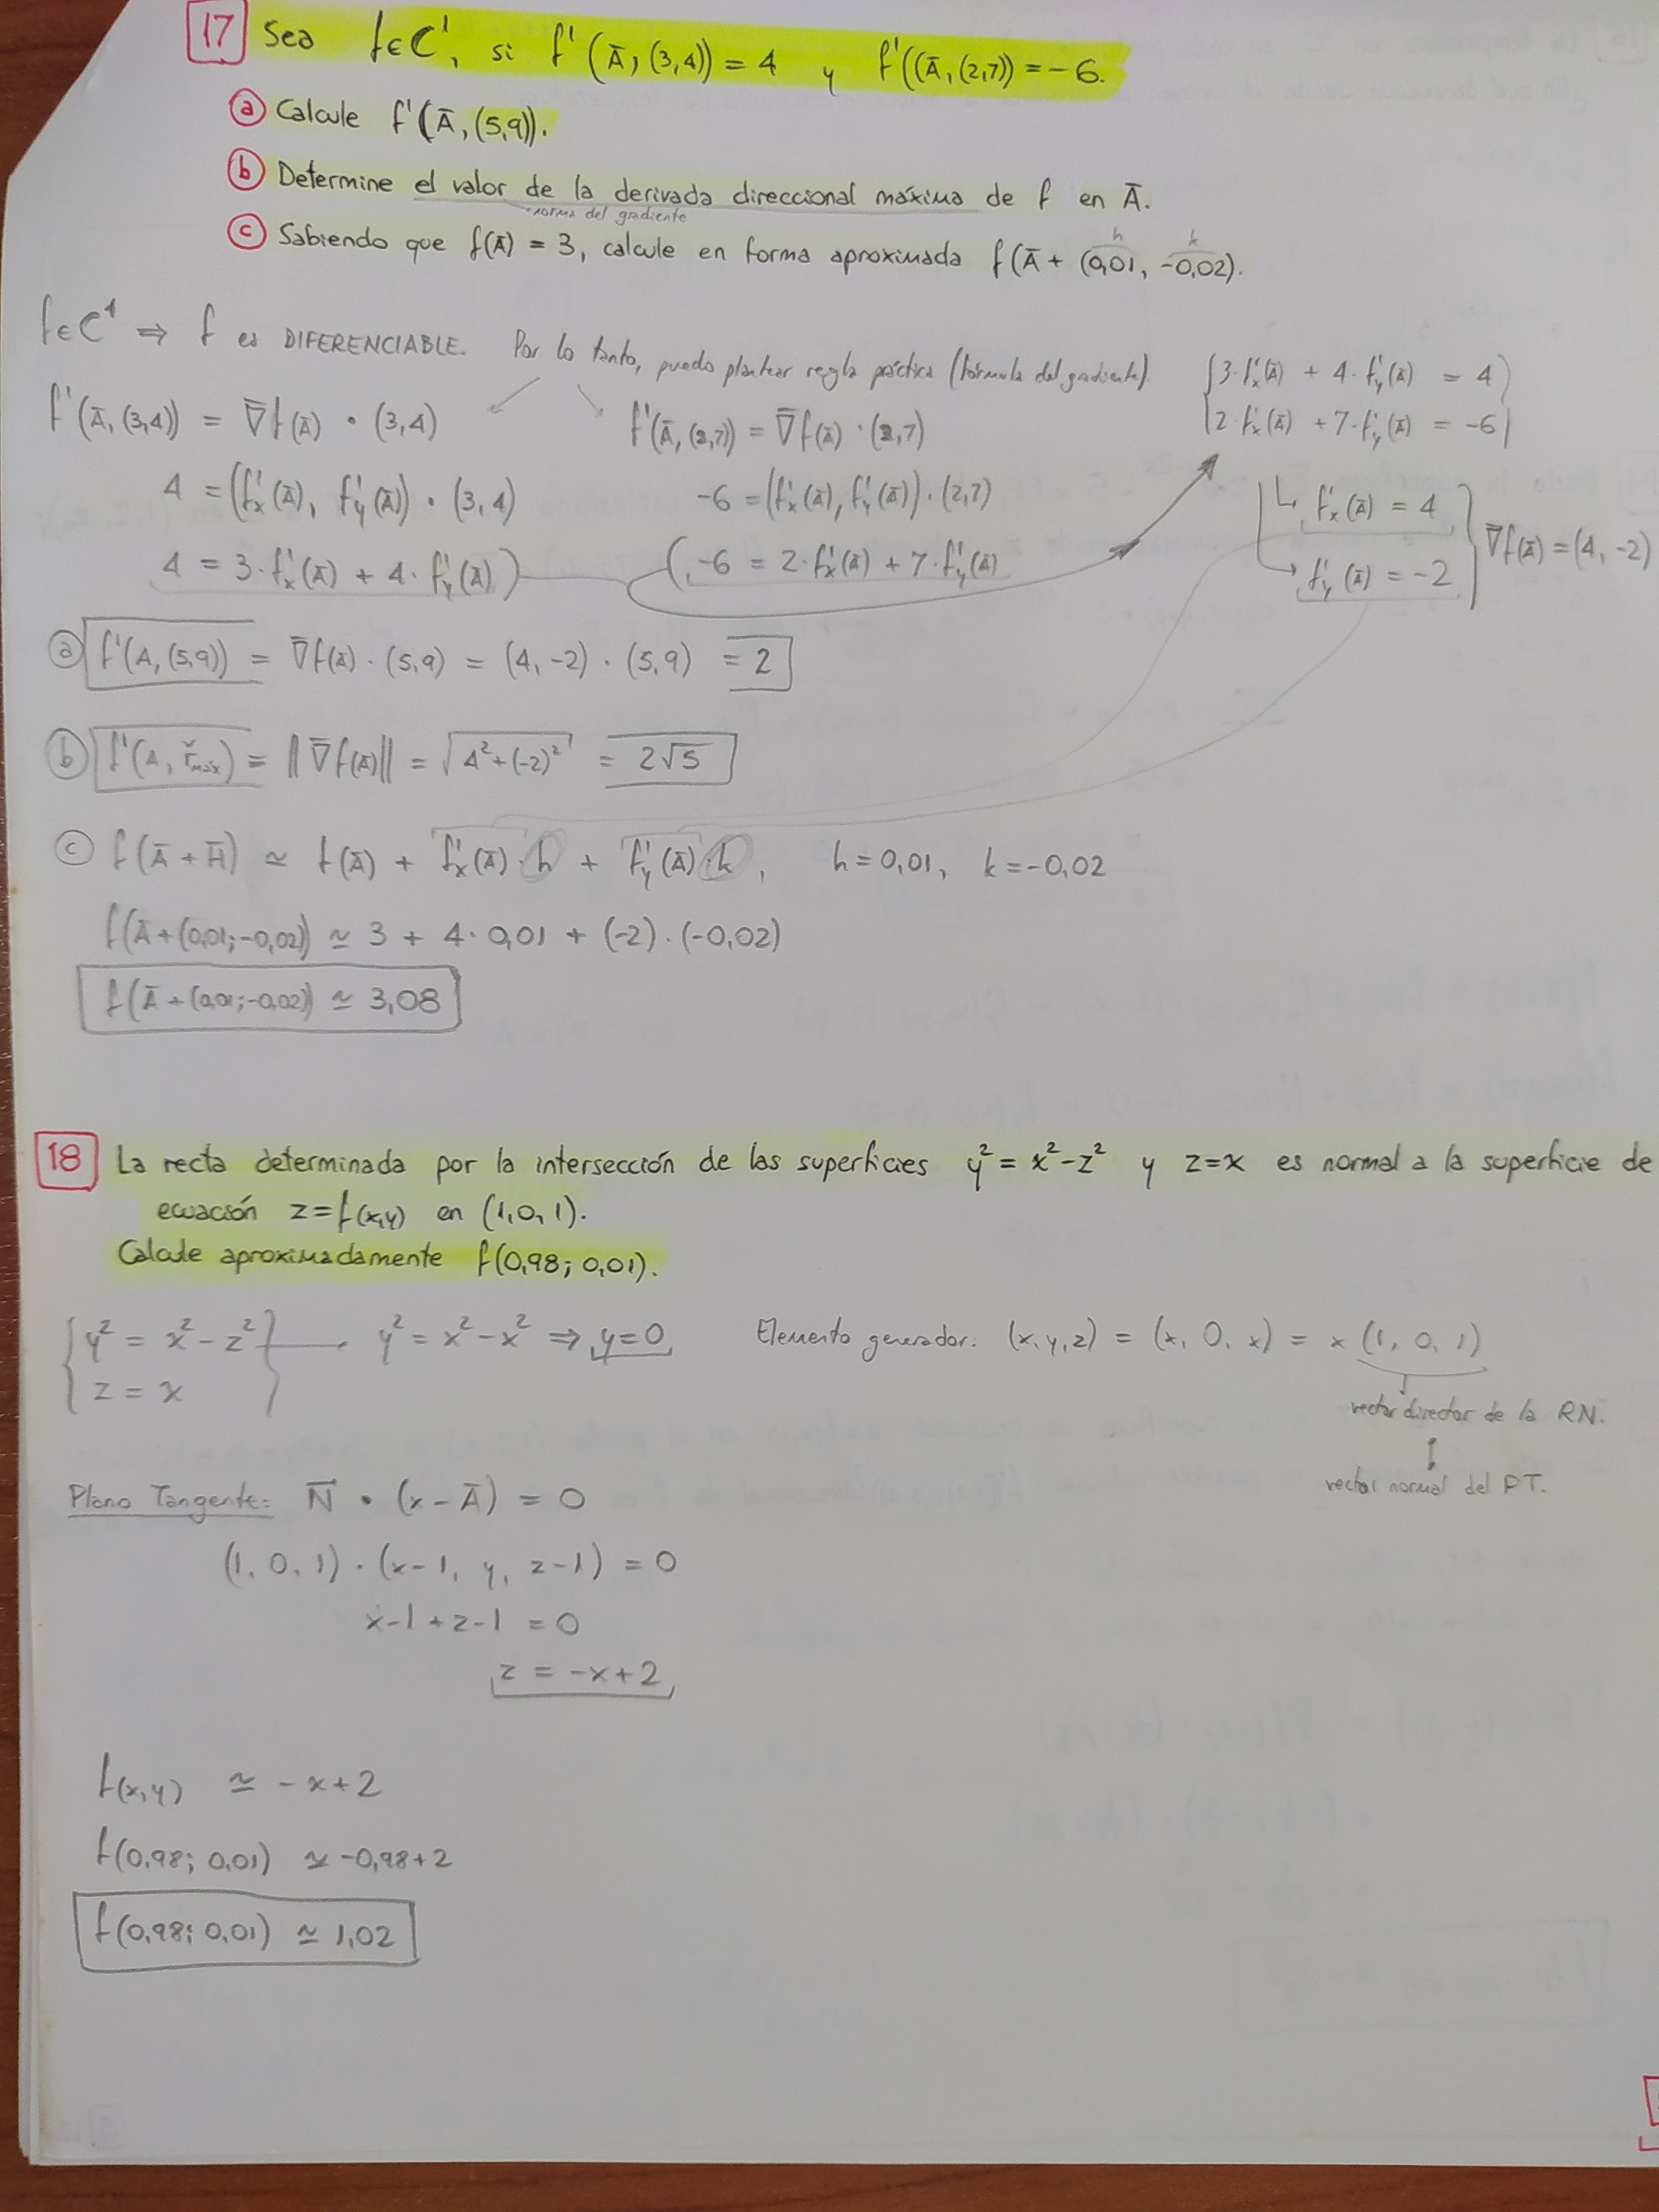 17 Sea f∈C¹, si f'(Ā, (3,4)) = 4 y f'((Ā, (2,7)) = -6.
ⓐ Calcule f'(Ā, (5,9)).
ⓑ Determine el valor de la derivada direccional máxima de f en Ā.
norma del gradiente
h k
ⓒ Sabiendo que f(Ā) = 3, calcule en forma aproximada f(Ā + (0,01, -0,02).
f∈C¹ ⇒ f es DIFERENCIABLE. Por lo tanto, puedo plantear regla práctica (fórmula del gradiente).
f'(Ā, (3,4)) = ∇̄f(Ā) • (3,4)
4 = (f'x(Ā), f'y(Ā)) • (3,4)
4 = 3·f'x(Ā) + 4·f'y(Ā)
f'(Ā, (2,7)) = ∇̄f(Ā) · (2,7)
-6 = (f'x(Ā), f'y(Ā)) · (2,7)
-6 = 2·f'x(Ā) + 7·f'y(Ā)
{3·f'x(Ā) + 4·f'y(Ā) = 4
{2·f'x(Ā) + 7·f'y(Ā) = -6
f'x(Ā) = 4
f'y(Ā) = -2
∇̄f(Ā) = (4, -2)
ⓐ f'(A, (5,9)) = ∇̄f(Ā) · (5,9) = (4, -2) · (5,9) = 2
ⓑ f'(A, řmáx) = ||∇̄f(Ā)|| = √4²+(-2)² = 2√5
ⓒ f(Ā + H̄) ≃ f(Ā) + f'x(Ā)·h + f'y(Ā)·k, h = 0,01, k = -0,02
f(Ā + (0,01; -0,02)) ≃ 3 + 4·0,01 + (-2)·(-0,02)
f(Ā + (0,01; -0,02)) ≃ 3,08
18 La recta determinada por la intersección de las superficies y² = x²-z² y z=x es normal a la superficie de
ecuación z=f(x,y) en (1,0,1).
Calcule aproximadamente f(0,98; 0,01).
{y² = x² - z²} y² = x² - x² ⇒ y=0 Elemento generador: (x, y, z) = (x, 0, x) = x (1, 0, 1)
{z = x
vector director de la RN.
↕
vector normal del PT.
Plano Tangente: N̄ • (x - Ā) = 0
(1, 0, 1) · (x-1, y, z-1) = 0
x-1+z-1 = 0
z = -x+2
f(x,y) ≃ -x+2
f(0,98; 0,01) ≃ -0,98+2
f(0,98; 0,01) ≃ 1,02